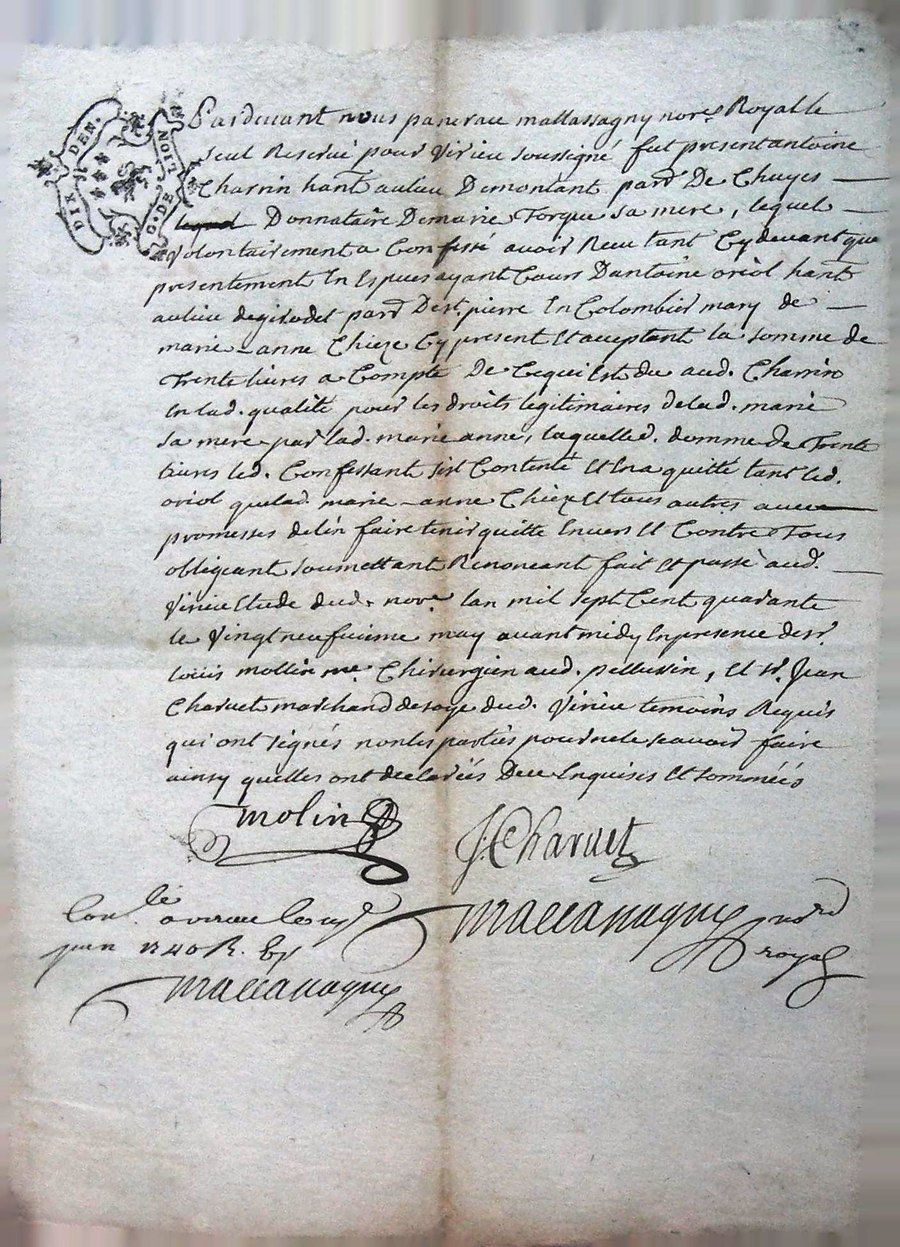 DIX DEN.
G. DE LION
Pardevant nous pancrace mallassagny nore. Royal le
seul Reservé pour Virieu soussigné fut present antoine
Charrin hant au lieu Demontant parr. De Chuyes
lequel Donnataire De marie Torque sa mere, lequel
volontairement a Confessé avoir Receu tant Cy devant que
presentement En Espues ayant Cours D'antoine oriol hant
au lieu de girodet parr. De st. pierre En Colombier mary de
marie-anne Chieze Cy present Et acceptant la somme de
Trente livres a Compte De Cequi Est du aud. Charrin
En lad. qualité pour les droits legitimaires de lad. marie
sa mere par lad. marie anne, laquelle d. somme de Trente
livres led. Confessant s'est Contenté Et En a quitté tant led.
oriol que lad. marie-anne Chieze Et tous autres avec
promesses de l'en faire tenir quitte Envers Et Contre Tous
obligeant soumettant Renonceant fait Et passé aud.
Virieu Etude dud. nore. lan mil sept Cent quarante
le vingt neufvieme may avant midy En presence de sr.
louis mollin me. Chirurgien aud. pellussin, Et sr. Jean
Charvet marchand de soye dud. Virieu temoins Requis
qui ont signés non les parties pour ne le scavoir faire
ainsy quelles ont declarées De ce Enquises Et sommées
molin
J. Charvet
lé
juin 1740 R.
nore
royal